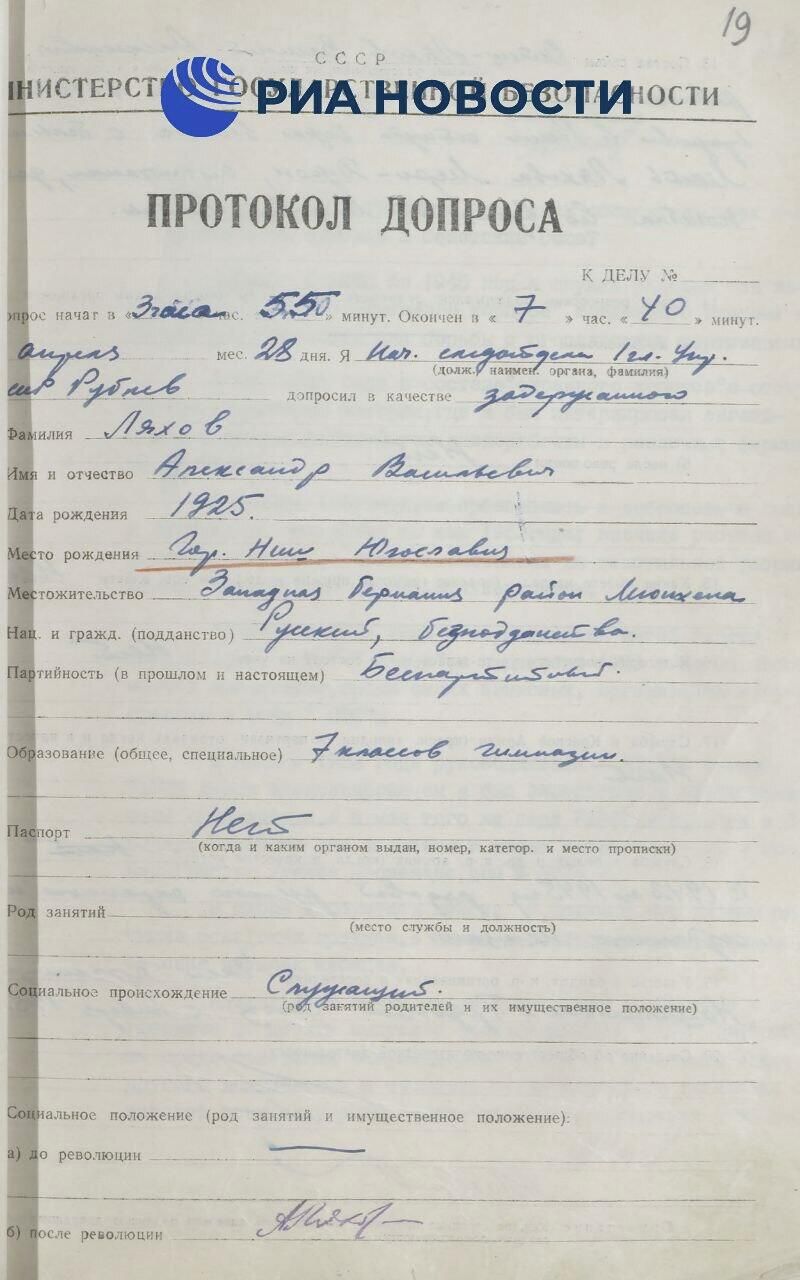 19
СССР
ИНИСТЕРСТВО ГОСУДАРСТВЕННОЙ БЕЗОПАСНОСТИ
РИА НОВОСТИ
ПРОТОКОЛ ДОПРОСА
К ДЕЛУ №
опрос начат в « час. 55 » минут. Окончен в « 7 » час. « 40 » минут.
апреля мес. 28 дня. Я Нач. след. 1 гл. Упр.
(долж., наимен. органа, фамилия)
Рублев допросил в качестве задержанного
Фамилия Ляхов
Имя и отчество Александр Васильевич
Дата рождения 1925.
Место рождения Гор. Ниш Югославия
Местожительство Западная Германия район Мюнхена
Нац. и гражд. (подданство) Русский, безподданства.
Партийность (в прошлом и настоящем) Беспартийный.
Образование (общее, специальное) 7 классов гимназии.
Паспорт Нет
(когда и каким органом выдан, номер, категор. и место прописки)
Род занятий
(место службы и должность)
Социальное происхождение Служащий.
(род занятий родителей и их имущественное положение)
Социальное положение (род занятий и имущественное положение):
а) до революции —
б) после революции